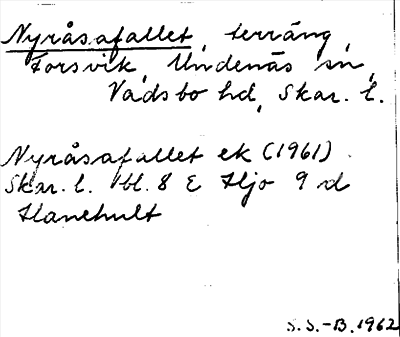 Nyråsafallet, terräng,
Forsvik, Undenäs sn,
Vadsbo hd, Skar. l.
Nyråsafallet ek (1961)
Skar. l. bl. 8 E Hjo 9 d
Hanehult
S. S.-B. 1962